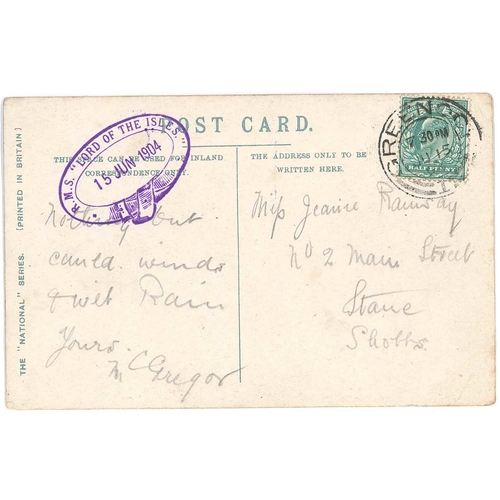 POST CARD.
THIS SPACE CAN BE USED FOR INLAND
CORRESPONDENCE ONLY.
THE ADDRESS ONLY TO BE
WRITTEN HERE.
R.M.S. "LORD OF THE ISLES."
15 JUN 1904
THE "NATIONAL" SERIES. (PRINTED IN BRITAIN)
Nothing but
cauld winds
& wet Rain
Yours
McGregor
Miss Jeanie Ramsay
No 2 Main Street
Stane
Shotts.
GREENOCK
30 PM
HALFPENNY